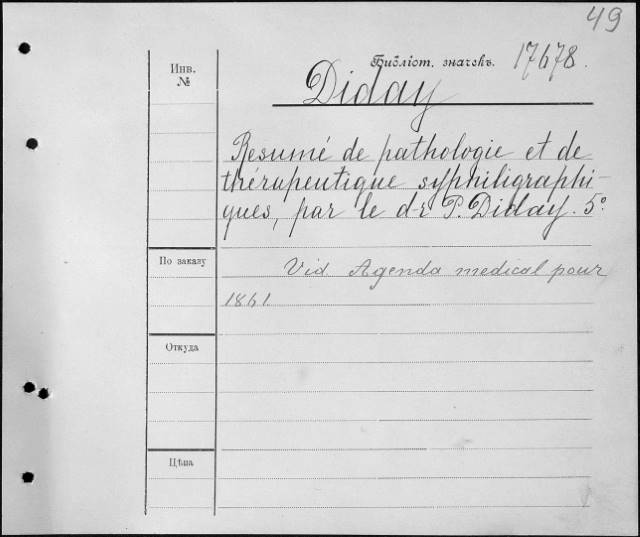 49
Библіот. значекъ. 17678.
Инв.
№
Diday
Resumé de pathologie et de
thérapeutique syphiligraphi-
ques, par le d-r P. Diday. 5°.
По заказу
Vid. Agenda medical pour
1861.
Откуда
Цѣна